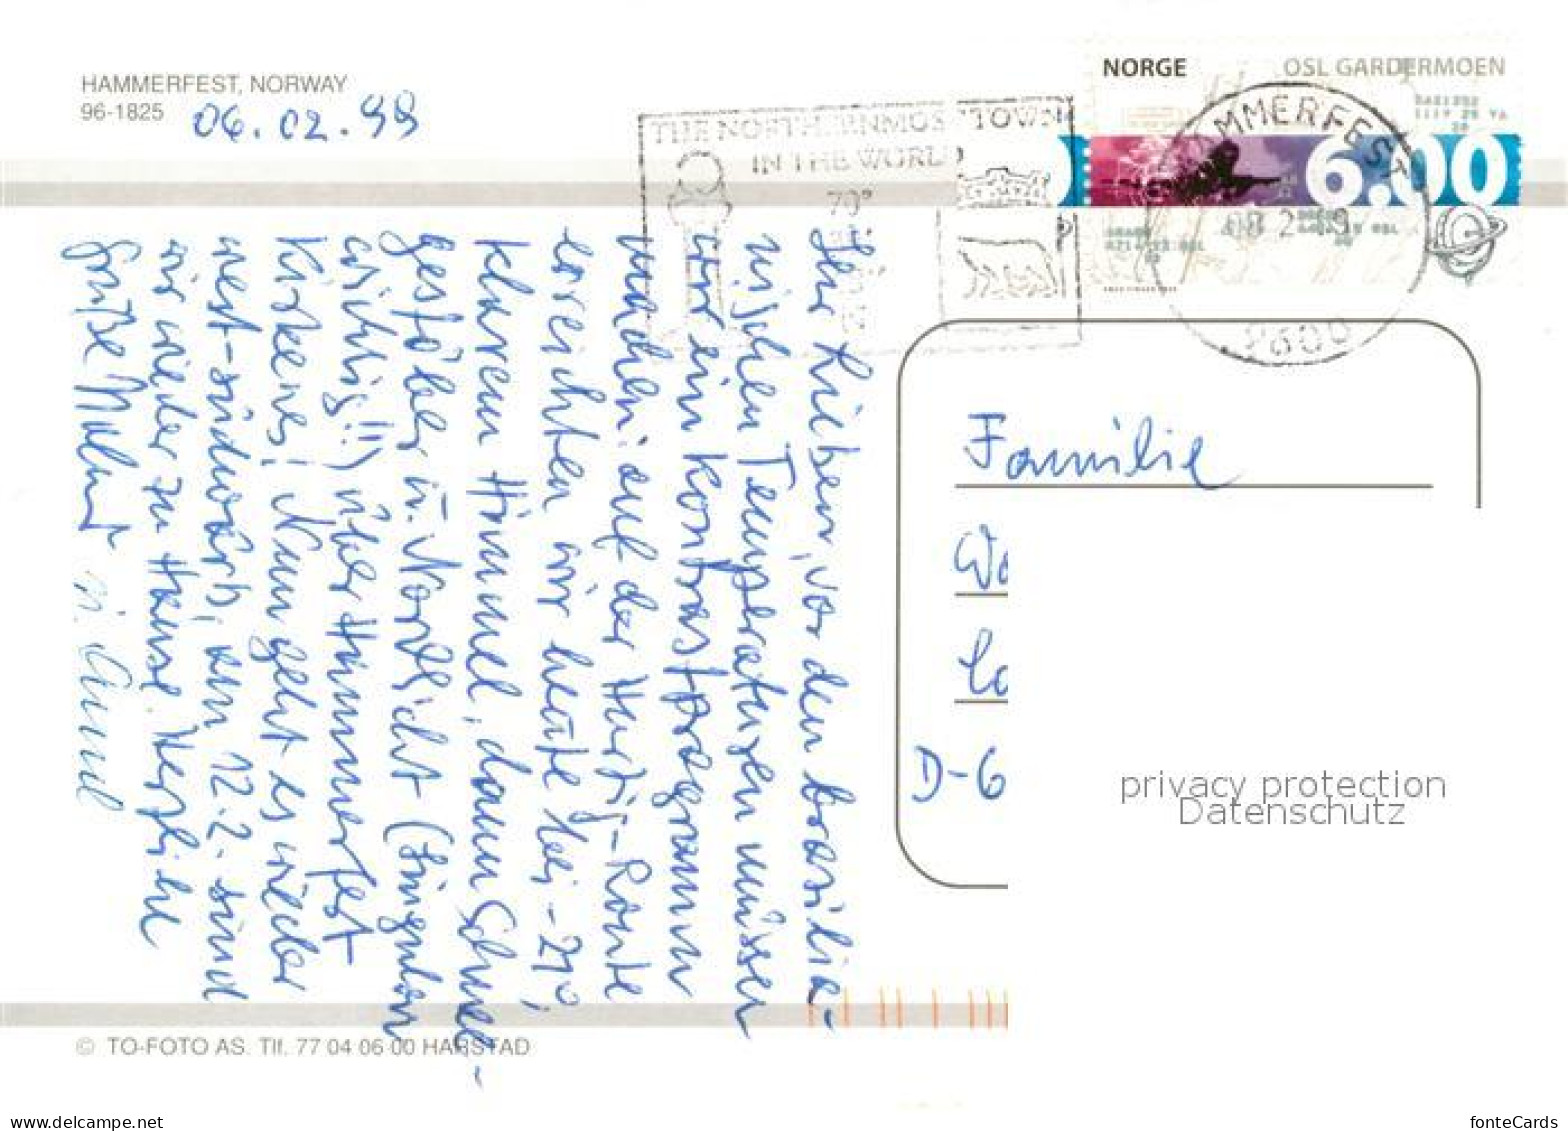 HAMMERFEST, NORWAY
96-1825
06.02.99
THE NORTHERNMOST TOWN
IN THE WORLD
70°
NORGE
OSL GARDERMOEN
6.00
HAMMERFEST
9600
Ihr Lieben, vor den brasilia-
nischen Temperaturen müssen
wir ein Kontrastprogramm
machen: auf der Hurtig-Route
erreichten wir heute bei -21°,
klarem Himmel, dann Schnee-
gestöber u. Nordlicht (
richtig!!) über Hammerfest
Kirkenes! Nun geht es wieder
west-südwärts, am 12.2. sind
wir wieder zu Hause. Herzliche
Grüße
Familie
D-6
privacy protection
Datenschutz
© TO-FOTO AS. Tlf. 77 04 06 00 HARSTAD
www.delcampe.net
fonteCards